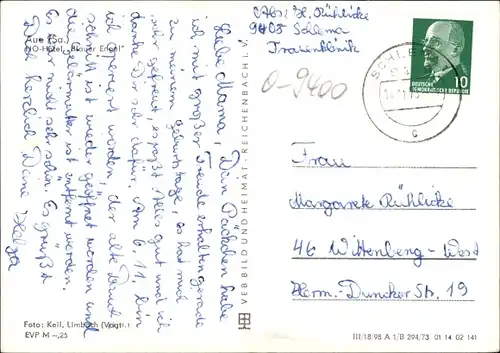 Aue (Sa.)
HO-Hotel „Blauer Engel“
Liebe Mama, Dein Päckchen habe
ich mit großer Freude erhalten gerade
zu meinem Geburtstage, es hat mich
sehr gefreut, es paßt alles gut und ich
danke Dir sehr dafür. Am 6.11. bin
ich operiert worden, der alte
ist wieder geöffnet worden und
die entfernt worden.
War nicht sehr schön. Es grüßt
Dich herzlich Deine Helga
Foto: Keil, Limbach (Vogtl.)
EVP M –,25
VEB BILD UND HEIMAT REICHENBACH i. V.
Abs.: H. Rühlicke
9405 Schlema
Frauenklinik
0-9400
DEUTSCHE
DEMOKRATISCHE REPUBLIK
10
SCHLEMA
c
Frau
Margarete Rühlicke
46 Wittenberg-West
Herm.-Duncker Str. 19
III/18/98 A 1/B 294/73 01 14 02 141